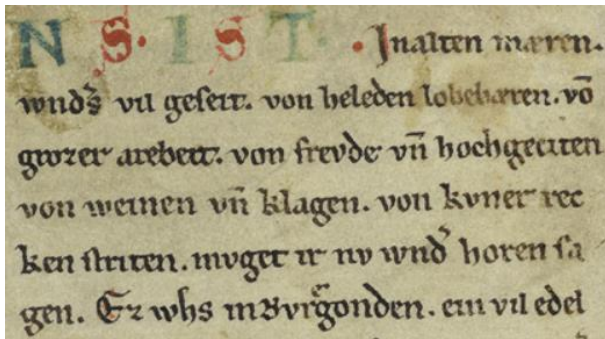 N S· I S T· · Jn alten mæren.
wnd͛s vil geseit. von heleden lobebæren. võ
grozer arebeit. von frevde vn̄ hochgeciten
von weinen vn̄ klagen. von kvner rec
ken striten. mvget ir nv wnd͛ horen sa
gen. Ez whs in Bvrgͣonden. ein vil edel